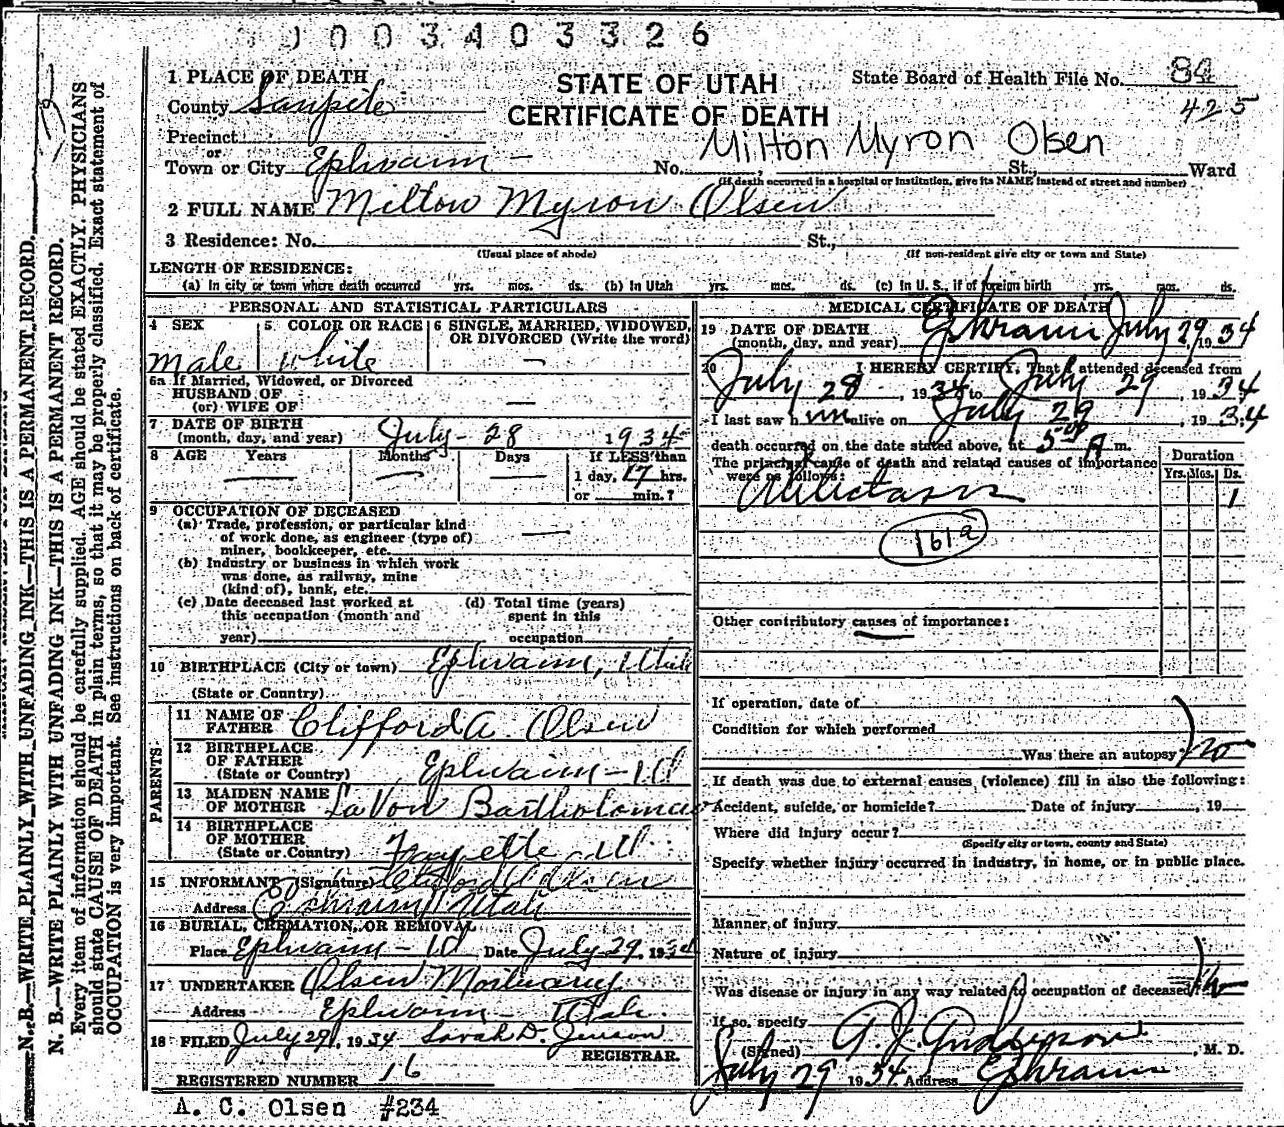 0003403326
1 PLACE OF DEATH
County Sanpete
Precinct
or
Town or City Ephraim
STATE OF UTAH
CERTIFICATE OF DEATH
State Board of Health File No. 84
425
Milton Myron Olsen
No. , St., Ward
(If death occurred in a hospital or institution, give its NAME instead of street and number)
2 FULL NAME Milton Myron Olsen
3 Residence: No. St.,
(Usual place of abode) (If non-resident give city or town and State)
LENGTH OF RESIDENCE:
(a) In city or town where death occurred yrs. mos. ds. (b) In Utah yrs. mos. ds. (c) In U. S., if of foreign birth yrs. mos. ds.
PERSONAL AND STATISTICAL PARTICULARS
4 SEX
Male
5 COLOR OR RACE
White
6 SINGLE, MARRIED, WIDOWED,
OR DIVORCED (Write the word)
—
6a If Married, Widowed, or Divorced
HUSBAND OF
(or) WIFE OF —
7 DATE OF BIRTH
(month, day, and year) July - 28 1934
8 AGE Years Months Days If LESS than
— — — 1 day, 17 hrs.
or min.?
9 OCCUPATION OF DECEASED
(a) Trade, profession, or particular kind
of work done, as engineer (type of) —
miner, bookkeeper, etc.
(b) Industry or business in which work
was done, as railway, mine
(kind of), bank, etc.
(c) Date deceased last worked at
this occupation (month and
year)
(d) Total time (years)
spent in this
occupation
10 BIRTHPLACE (City or town) Ephraim, Utah
(State or Country)
PARENTS
11 NAME OF
FATHER Clifford A. Olsen
12 BIRTHPLACE
OF FATHER
(State or Country) Ephraim - Ut
13 MAIDEN NAME
OF MOTHER LaVon Bartholomew
14 BIRTHPLACE
OF MOTHER
(State or Country) Fayette Ut
15 INFORMANT (Signature) Clifford A Olsen
Address Ephraim Utah
16 BURIAL, CREMATION, OR REMOVAL
Place Ephraim - Ut Date July 29, 1934
17 UNDERTAKER Olsen Mortuary
Address Ephraim - Utah.
18 FILED July 29, 1934 Sarah D. Jenson
REGISTRAR.
REGISTERED NUMBER 16
A. C. Olsen #234
MEDICAL CERTIFICATE OF DEATH
19 DATE OF DEATH
(month, day, and year) Ephraim July 29, 1934
20 I HEREBY CERTIFY, That I attended deceased from
July 28, 1934 to July 29, 1934
I last saw him alive on July 29, 1934
death occurred on the date stated above, at 5 A m.
The principal cause of death and related causes of importance
were as follows:
Duration
Yrs. Mos. Ds.
Atelectasis 1
161a
Other contributory causes of importance:
If operation, date of
Condition for which performed
Was there an autopsy? no
If death was due to external causes (violence) fill in also the following:
Accident, suicide, or homicide? Date of injury , 19
Where did injury occur?
(Specify city or town, county and State)
Specify whether injury occurred in industry, in home, or in public place.
Manner of injury
Nature of injury
Was disease or injury in any way related to occupation of deceased? no
If so, specify
(Signed) A. J. Anderson, M. D.
July 29 1934 Address Ephraim
N. B.—WRITE PLAINLY WITH UNFADING INK—THIS IS A PERMANENT RECORD.
N. B.—WRITE PLAINLY WITH UNFADING INK—THIS IS A PERMANENT RECORD.
Every item of information should be carefully supplied. AGE should be stated EXACTLY. PHYSICIANS
should state CAUSE OF DEATH in plain terms, so that it may be properly classified. Exact statement of
OCCUPATION is very important. See instructions on back of certificate.